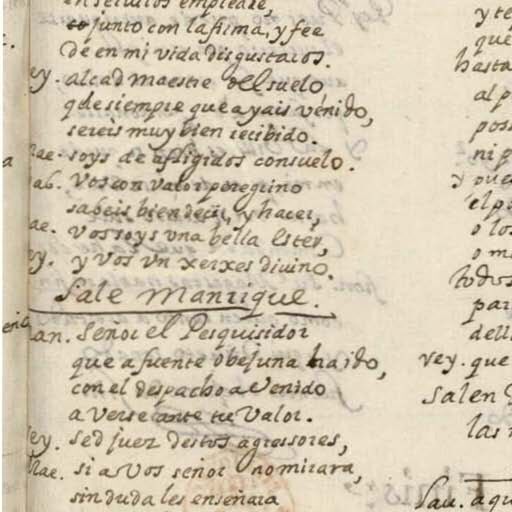 en serviros emplearé,
junto con la firma, y fee
de en mi vida disgustaros.
ey. al cad maestre dell suelo
q de siempre que ayais venido,
sereis muy bien recibido.
Mae. soys de afligidos consuelo.
ab. Vos con valor peregrino
sabeis bien decir, y hacer,
ae. vos soys una bella Ester,
ey. y vos un xerxes divino.
Sale Manrique.
an. Señor el Pesquisidor
que a fuente obejuna ha ido,
con el despacho a venido
a verse ante tu Valor.
ey. sed juez destos agressores,
Mae. si a Vos señor no mirara,
sin duda les enseñara
y te
que
hasta
al p
pos
ni p
y pue
el p
o los
o m
todos
par
dell
rey. que
salen
las
Lau. aqu